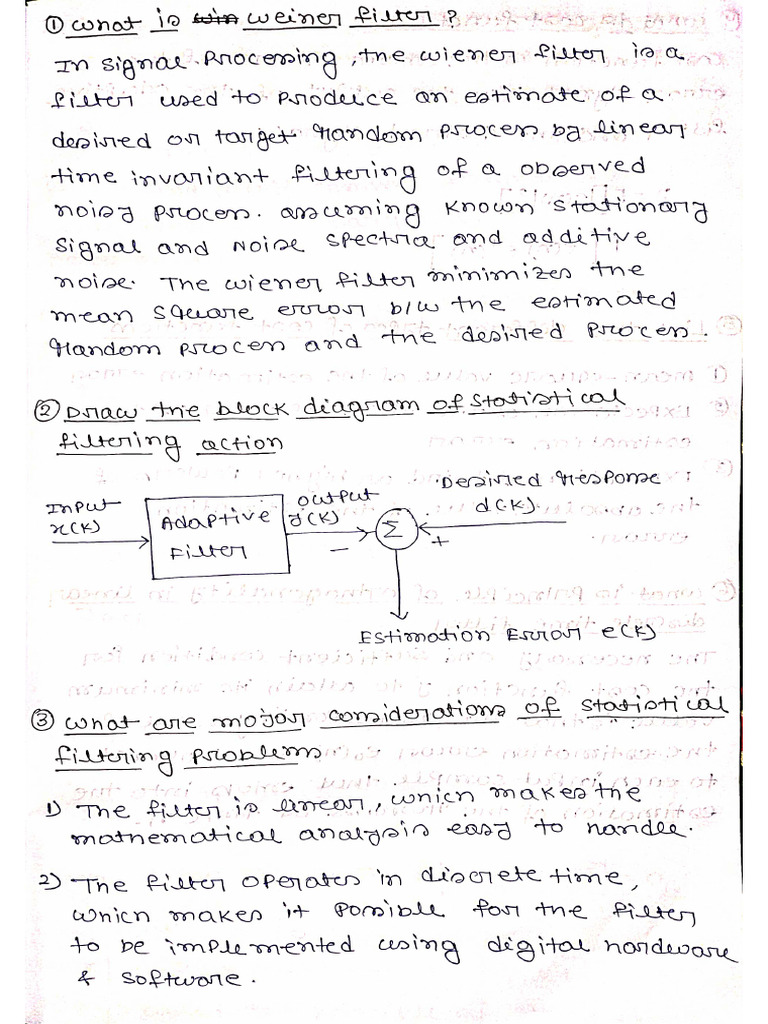 ① What is win Weiner filter ?
In signal processing, the wiener filter is a
filter used to produce an estimate of a
desired or target random process by linear
time invariant filtering of a observed
noisy process. assuming known stationary
signal and noise spectra and additive
noise. The wiener filter minimizes the
mean square error b/w the estimated
random process and the desired process.
② Draw the block diagram of statistical
filtering action
Input
x(k)
Adaptive
Filter
output
y(k)
−
Σ
+
Desired response
d(k)
Estimation Error e(k)
③ What are major considerations of statistical
filtering problems
1) The filter is linear, which makes the
mathematical analysis easy to handle.
2) The filter operates in discrete time,
which makes it possible for the filter
to be implemented using digital hardware
& software.